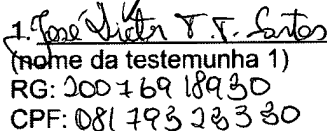 1. José Victor T. T. Santos
(nome da testemunha 1)
RG: 20076918930
CPF: 081 793 233 30